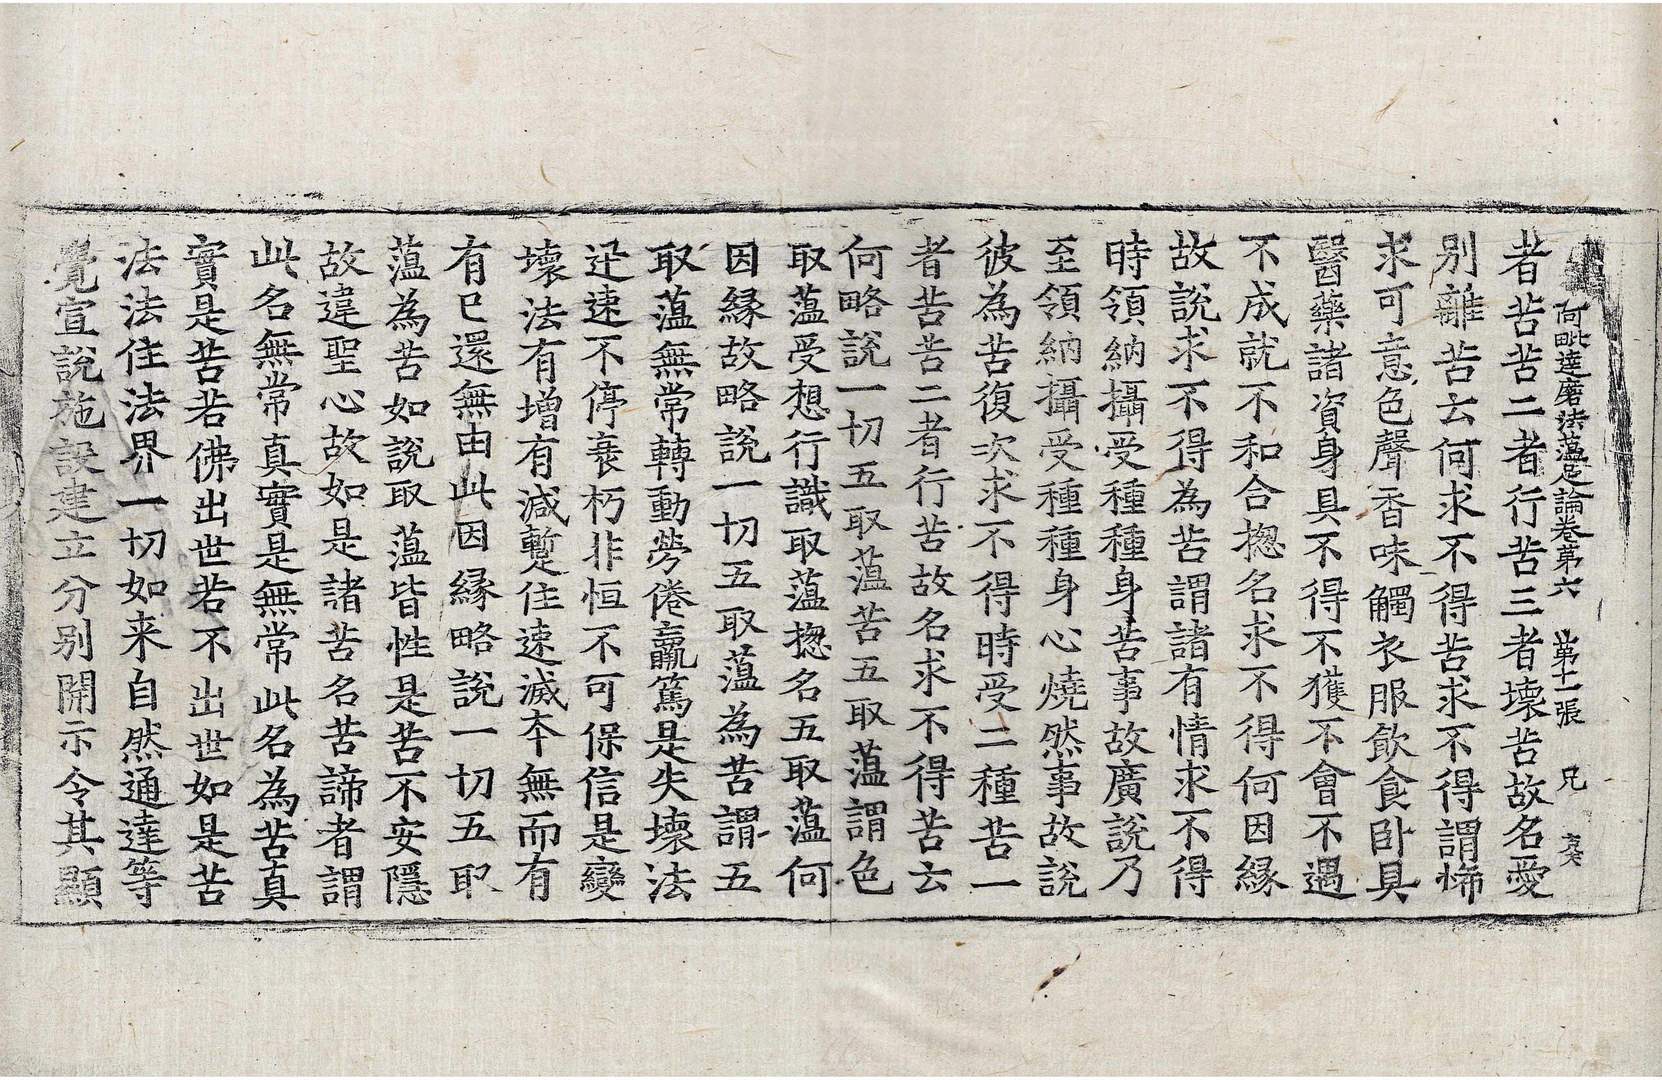 阿毗達磨法蘊足論卷第六 第十一張 兄
者苦苦二者行苦三者壞苦故名愛
別離苦云何求不得苦求不得謂悕
求可意色聲香味觸衣服飮食卧具
醫藥諸資身具不得不獲不會不遇
不成就不和合揔名求不得何因緣
故說求不得為苦謂諸有情求不得
時領納攝受種種身苦事故廣說乃
至領納攝受種種身心燒然事故說
彼為苦復次求不得時受二種苦一
者苦苦二者行苦故名求不得苦云
何略說一切五取蘊苦五取蘊謂色
取蘊受想行識取蘊揔名五取蘊何
因緣故略說一切五取蘊為苦謂五
取蘊無常轉動勞倦羸篤是失壞法
迅速不停衰朽非恒不可保信是變
壞法有增有減暫住速滅本無而有
有已還無由此因緣略說一切五取
蘊為苦如說取蘊皆性是苦不安隱
故違聖心故如是諸苦名苦諦者謂
此名無常真實是無常此名為苦真
實是苦若佛出世若不出世如是苦
法法住法界一切如来自然通達等
覺宣說施設建立分別開示令其顯